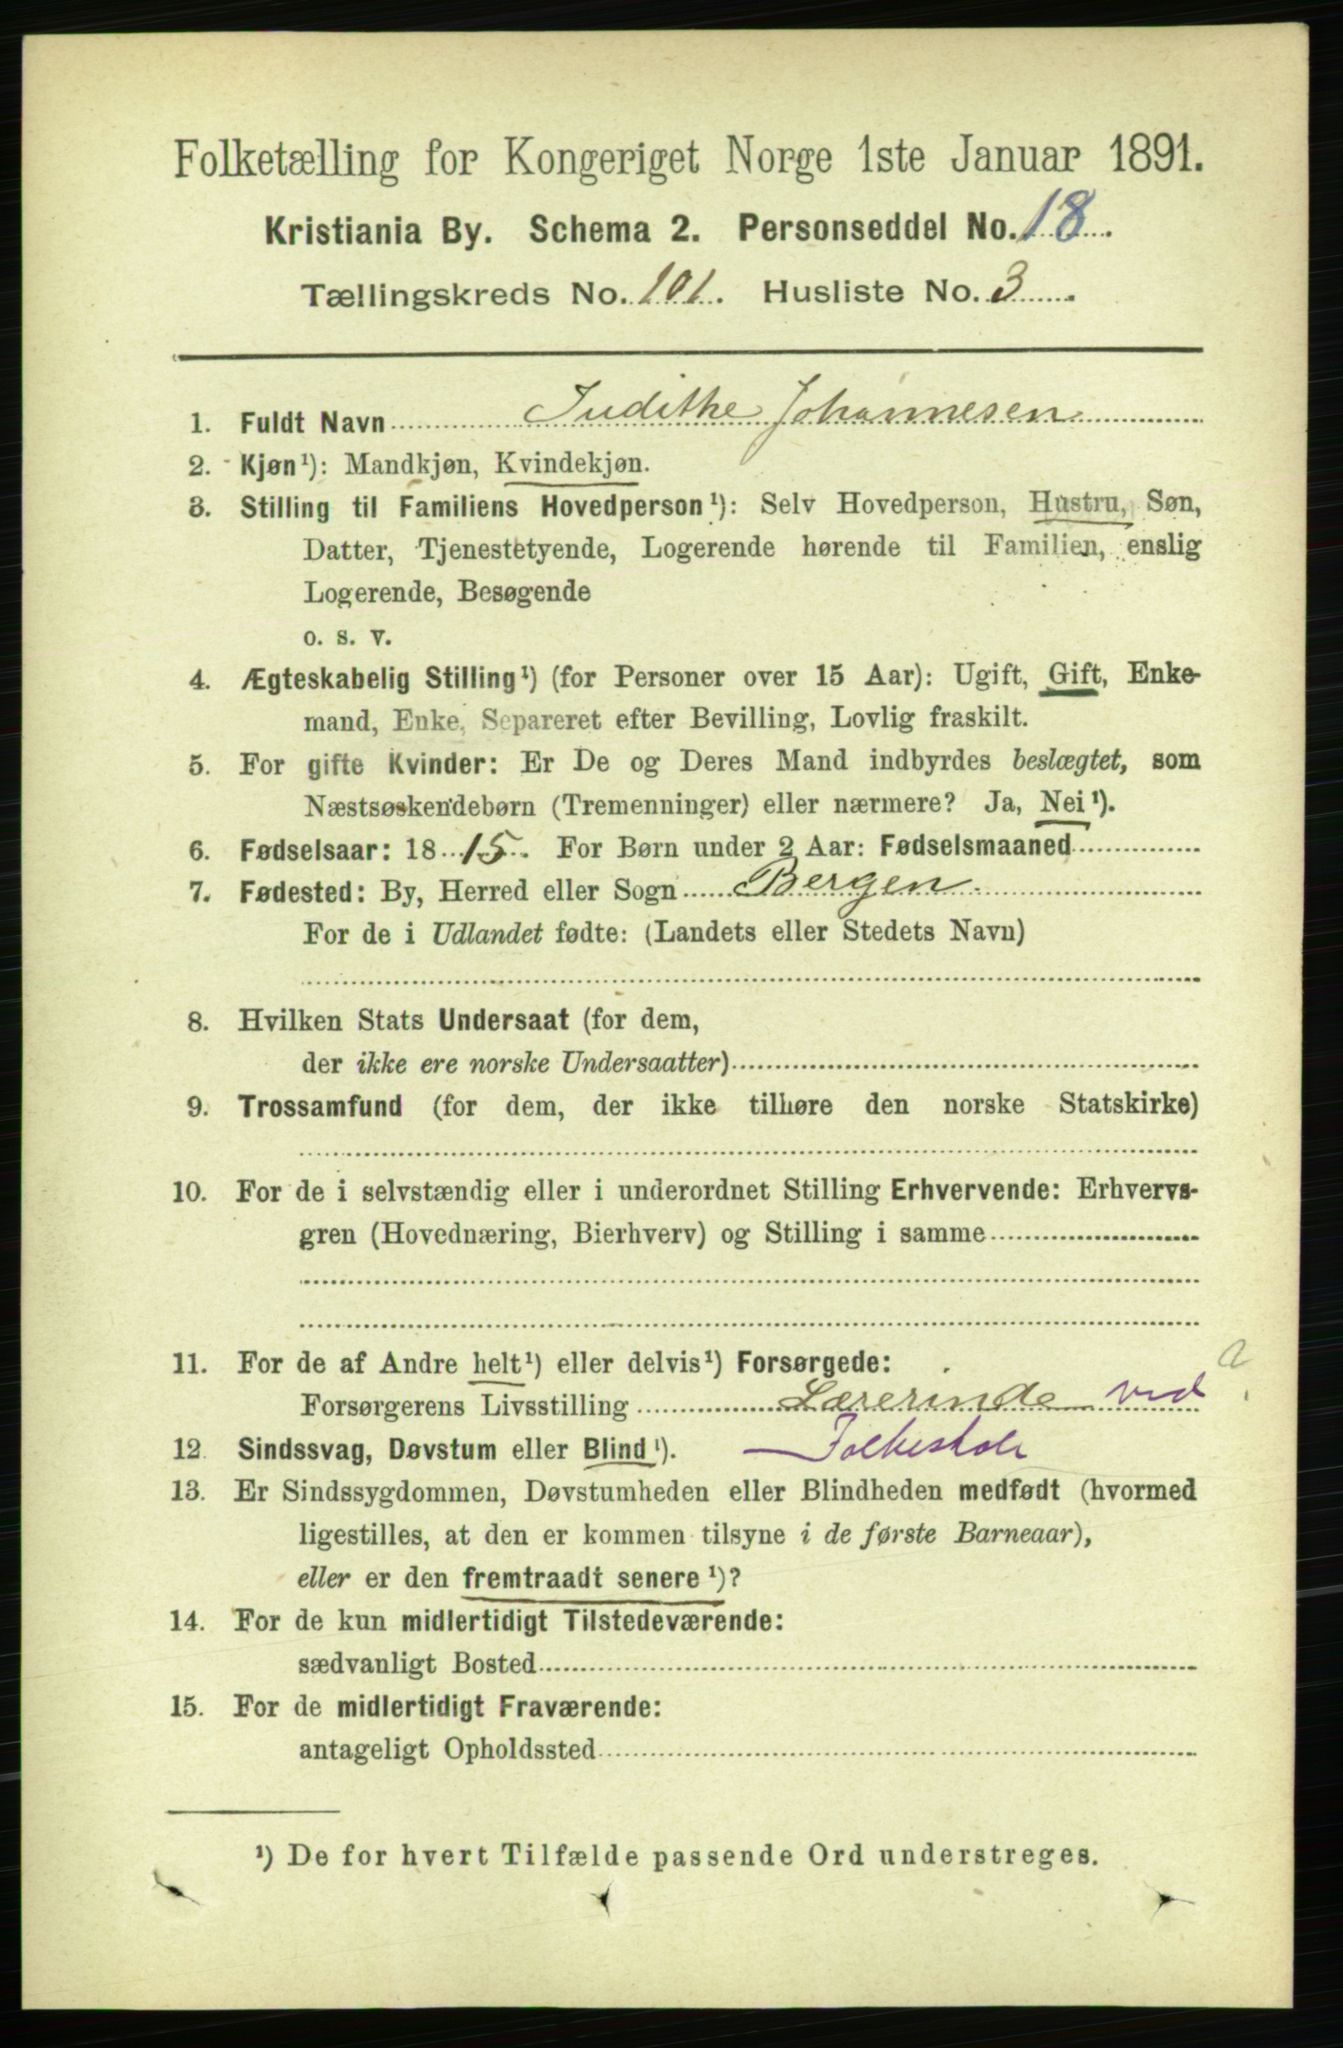 Folketælling for Kongeriget Norge 1ste Januar 1891.
Kristiania By. Schema 2. Personseddel No. 18.
Tællingskreds No. 101. Husliste No. 3.
1. Fuldt Navn Judithe Johannesen
2. Kjøn¹): Mandkjøn, Kvindekjøn.
3. Stilling til Familiens Hovedperson¹): Selv Hovedperson, Hustru, Søn,
Datter, Tjenestetyende, Logerende hørende til Familien, enslig
Logerende, Besøgende
o. s. v.
4. Ægteskabelig Stilling¹) (for Personer over 15 Aar): Ugift, Gift, Enke-
mand, Enke, Separeret efter Bevilling, Lovlig fraskilt.
5. For gifte Kvinder: Er De og Deres Mand indbyrdes beslægtet, som
Næstsøskendebørn (Tremenninger) eller nærmere? Ja, Nei¹).
6. Fødselsaar: 1815. For Børn under 2 Aar: Fødselsmaaned
7. Fødested: By, Herred eller Sogn Bergen.
For de i Udlandet fødte: (Landets eller Stedets Navn)
8. Hvilken Stats Undersaat (for dem,
der ikke ere norske Undersaatter)
9. Trossamfund (for dem, der ikke tilhøre den norske Statskirke)
10. For de i selvstændig eller i underordnet Stilling Erhvervende: Erhvervs-
gren (Hovednæring, Bierhverv) og Stilling i samme
11. For de af Andre helt¹) eller delvis¹) Forsørgede:
Forsørgerens Livsstilling Lærerinde ved ?
12. Sindssvag, Døvstum eller Blind¹). Folkeskole
13. Er Sindssygdommen, Døvstumheden eller Blindheden medfødt (hvormed
ligestilles, at den er kommen tilsyne i de første Barneaar),
eller er den fremtraadt senere¹)?
14. For de kun midlertidigt Tilstedeværende:
sædvanligt Bosted
15. For de midlertidigt Fraværende:
antageligt Opholdssted
¹) De for hvert Tilfælde passende Ord understreges.